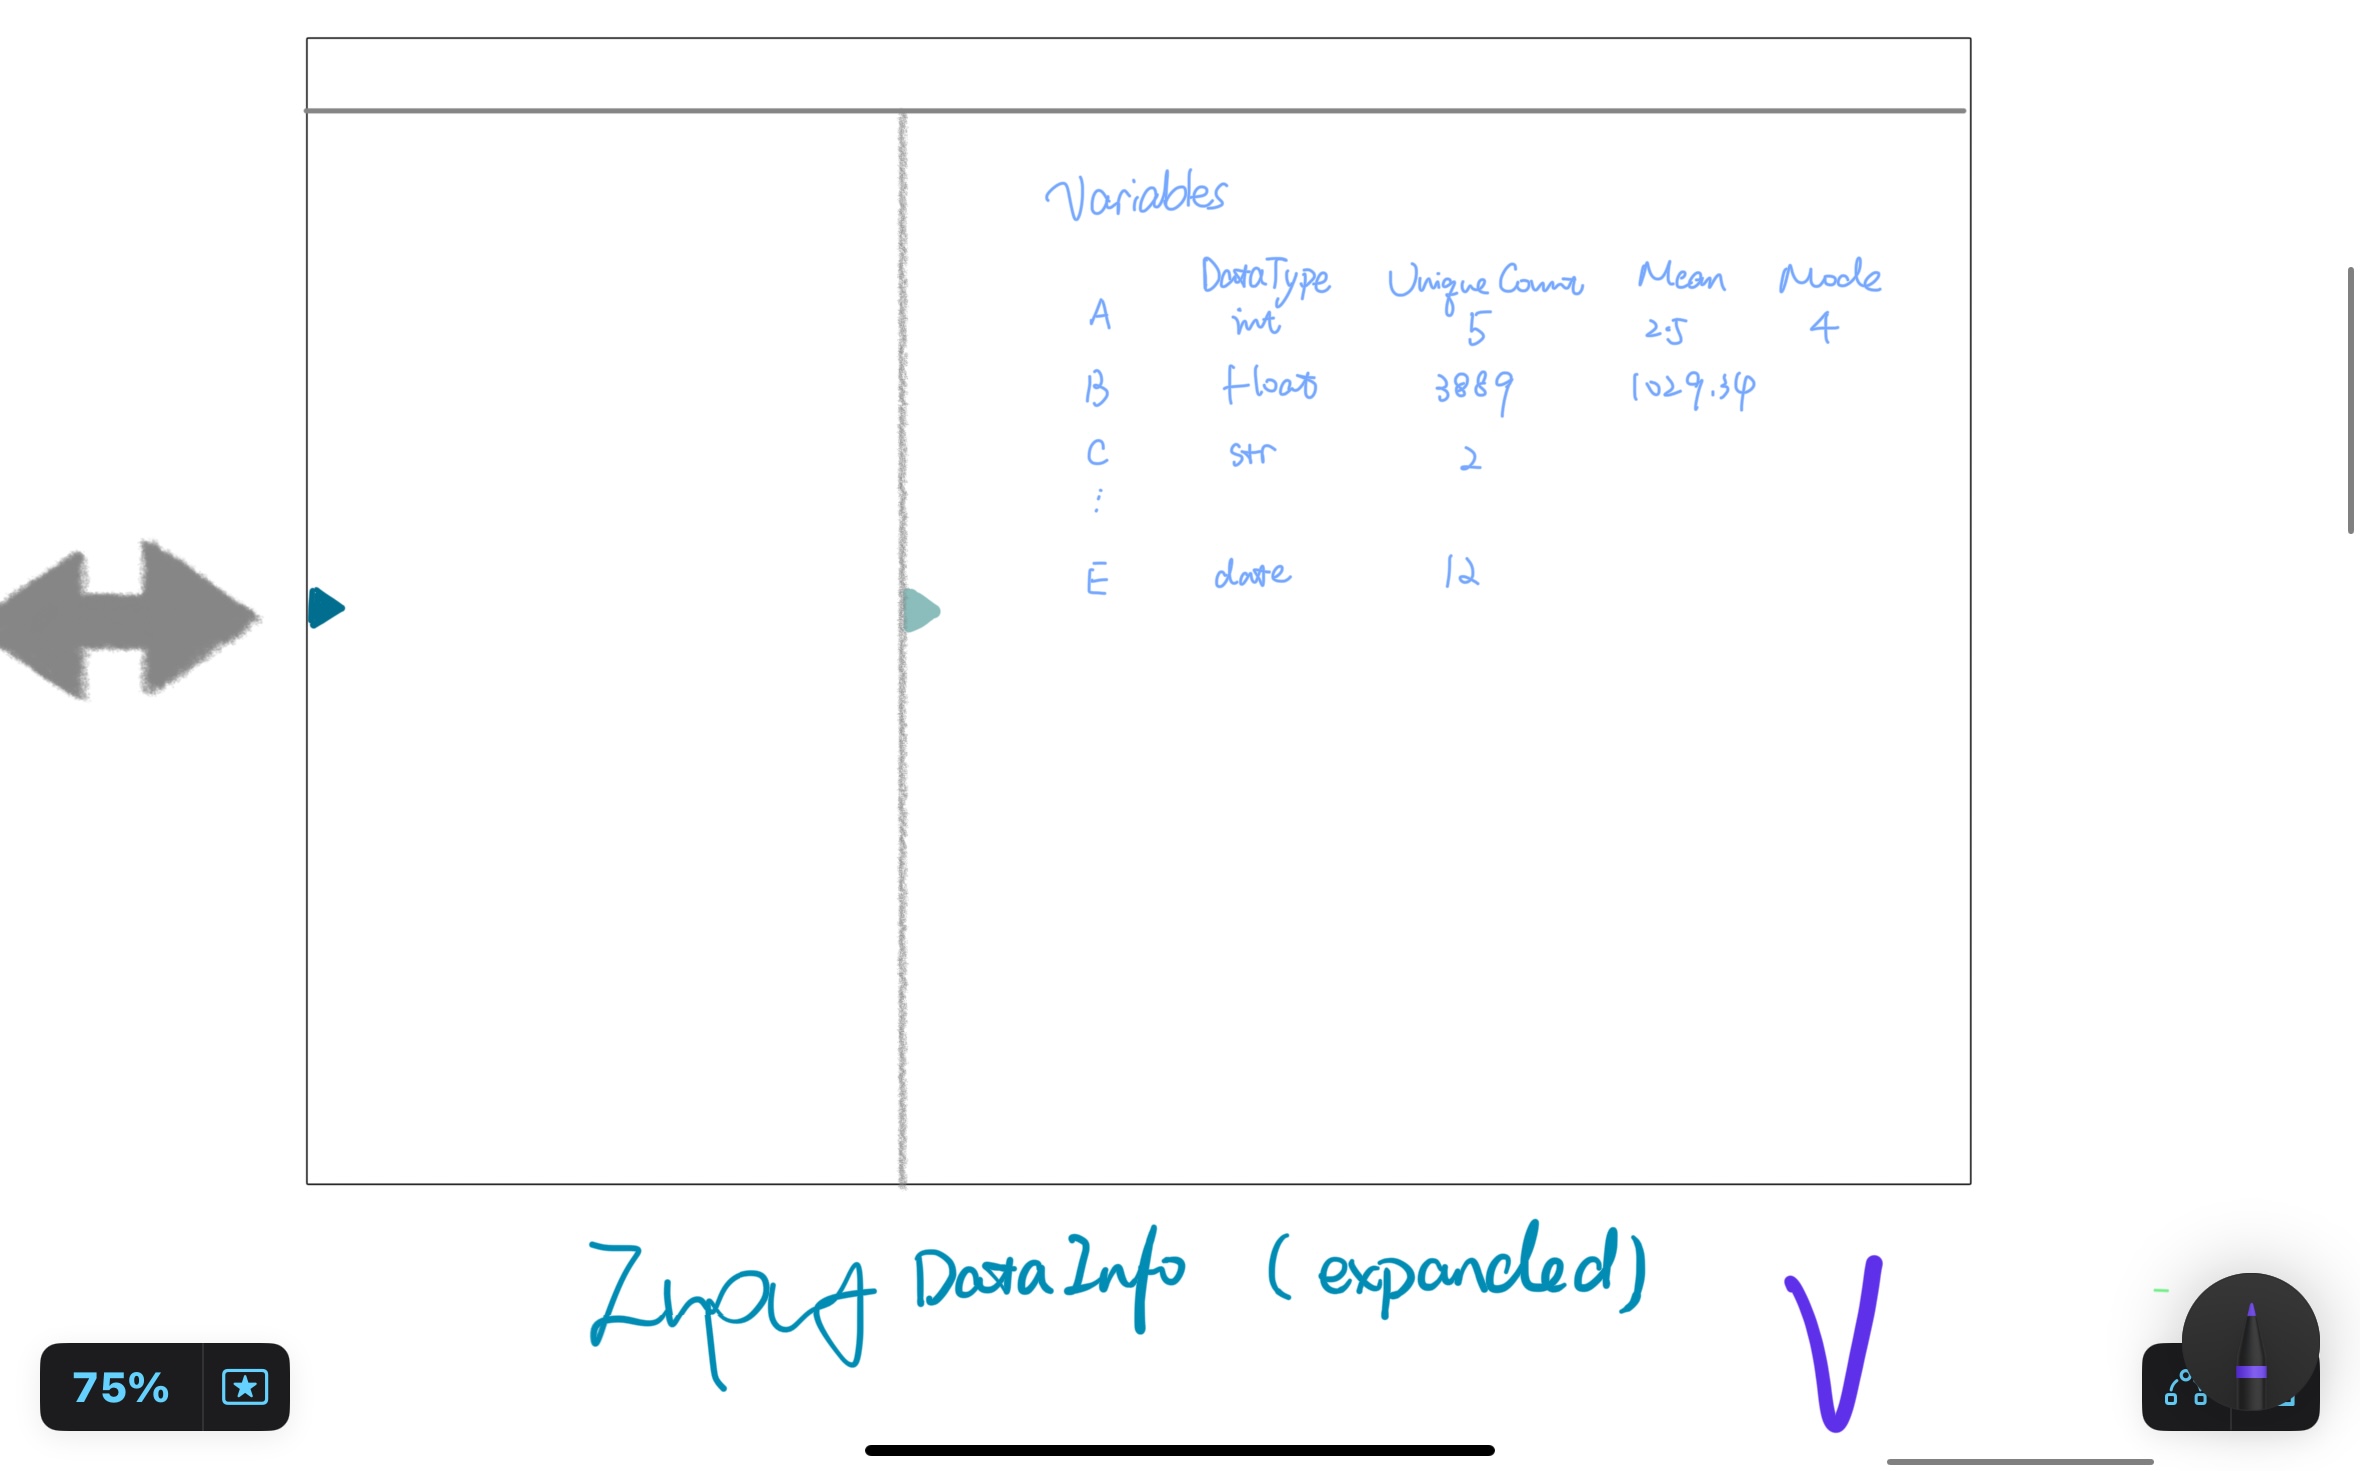 Variables
DataType Unique Count Mean Mode
A int 5 2.5 4
B float 3889 1029.34
C str 2
:
E date 12
Input Data Info (expanded)
V
75%